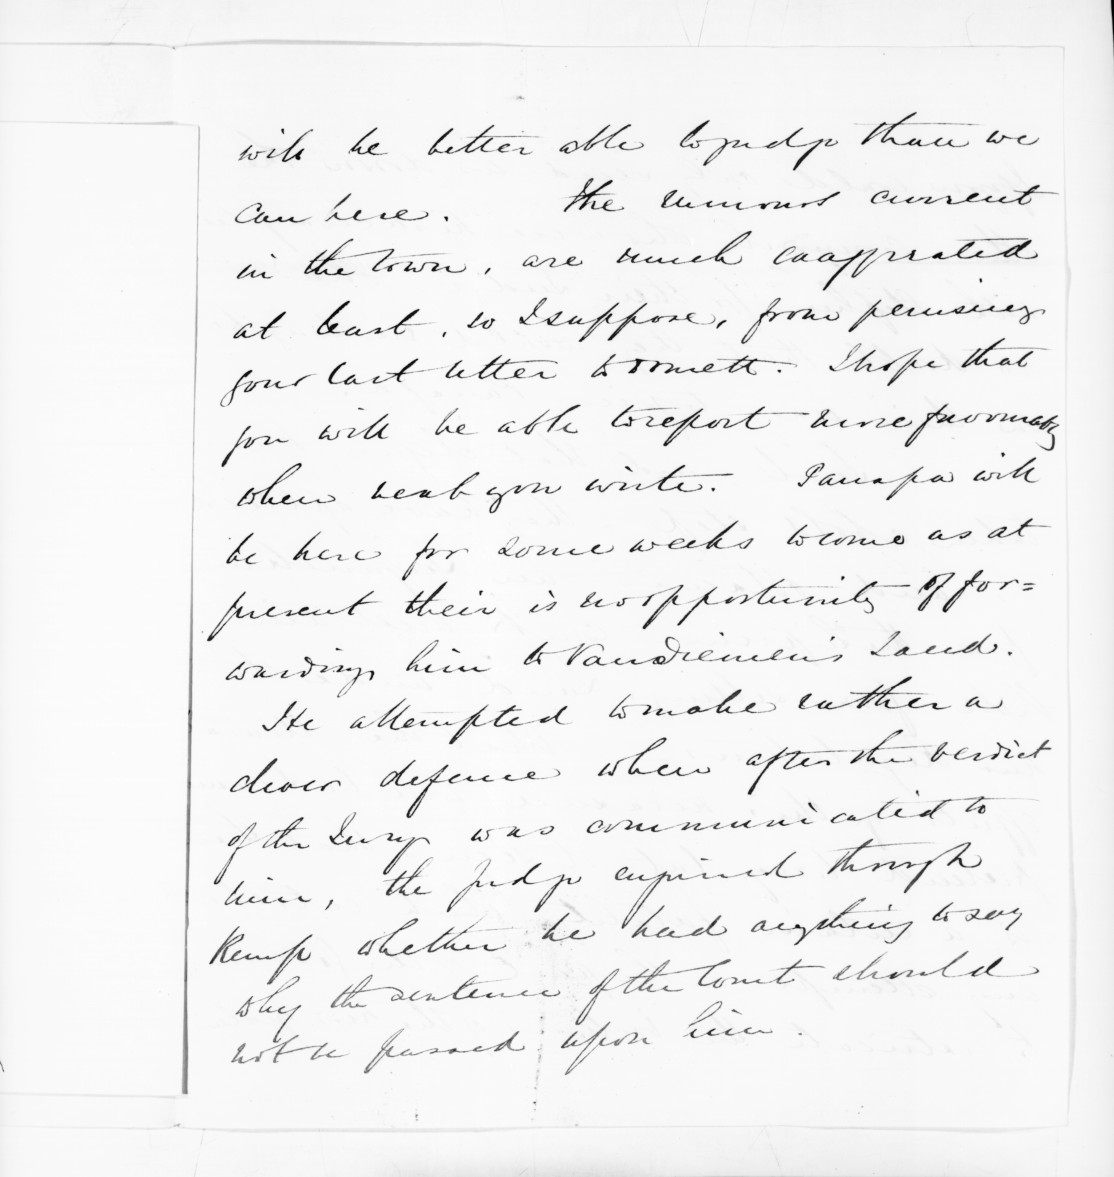 will be better able to judge than we
can here. The rumours current
in the town, are much exaggerated
at least, so I suppose, from perusing
your last letter to Domett. I hope that
you will be able to report more favourably
when next you write. Panapa will
be here for some weeks to come as at
present their is no opportunity of for=
warding him to Van Diemen's Land.
He attempted to make rather a
clever defence when after the verdict
of the Jury was communicated to
him, the Judge enquired through
Kemp whether he had anything to say
why the sentence of the Court should
not be passed upon him.